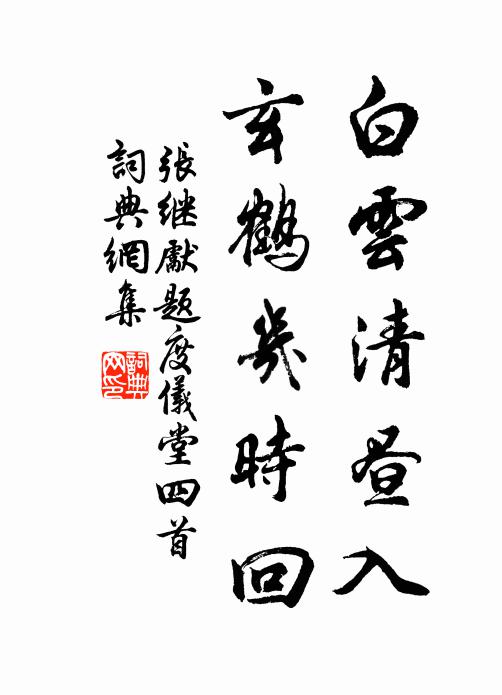 白雲清昼入
玄鶴幾時回
張继獻題度儀堂四首
詞典網集
詞典网印